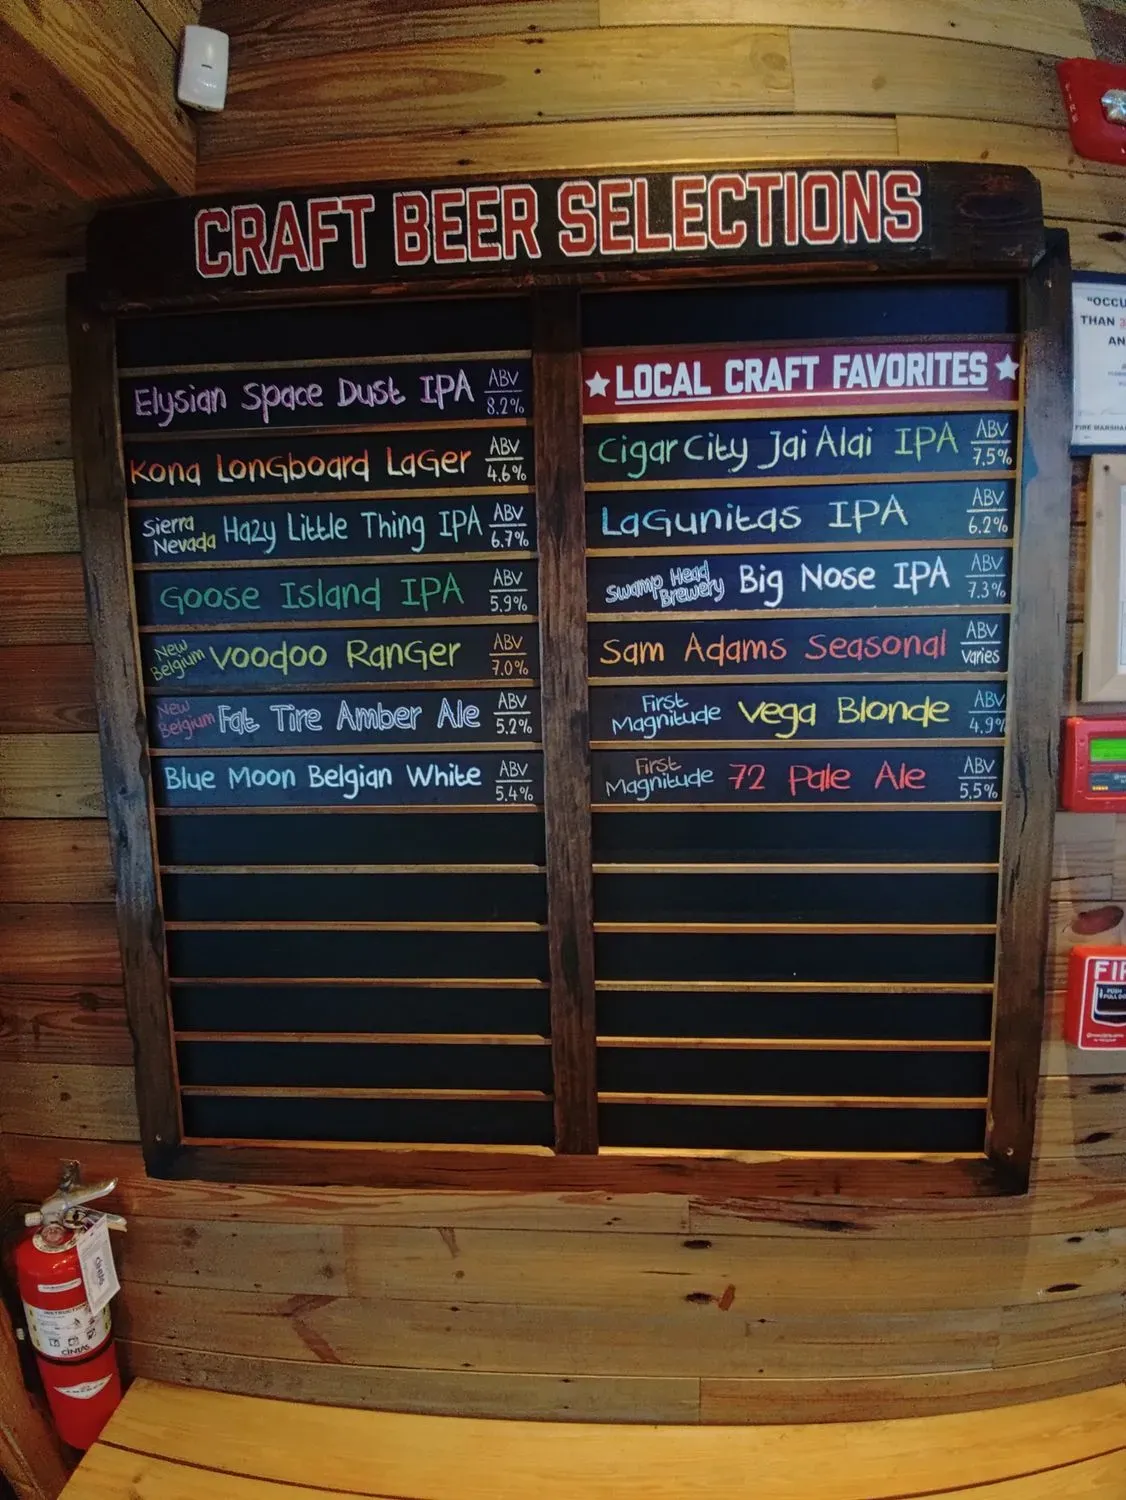 CRAFT BEER SELECTIONS
Elysian Space Dust IPA ABV 8.2%
Kona Longboard Lager ABV 4.6%
Sierra Nevada Hazy Little Thing IPA ABV 6.7%
Goose Island IPA ABV 5.9%
New Belgium Voodoo Ranger ABV 7.0%
New Belgium Fat Tire Amber Ale ABV 5.2%
Blue Moon Belgian White ABV 5.4%
LOCAL CRAFT FAVORITES
Cigar City Jai Alai IPA ABV 7.5%
Lagunitas IPA ABV 6.2%
Swamp Head Brewery Big Nose IPA ABV 7.3%
Sam Adams Seasonal ABV varies
First Magnitude Vega Blonde ABV 4.9%
First Magnitude 72 Pale Ale ABV 5.5%
"OCCU
THAN 3
AN
FIRE MARSHA
FIR
PUSH
PULL DO
CINTAS